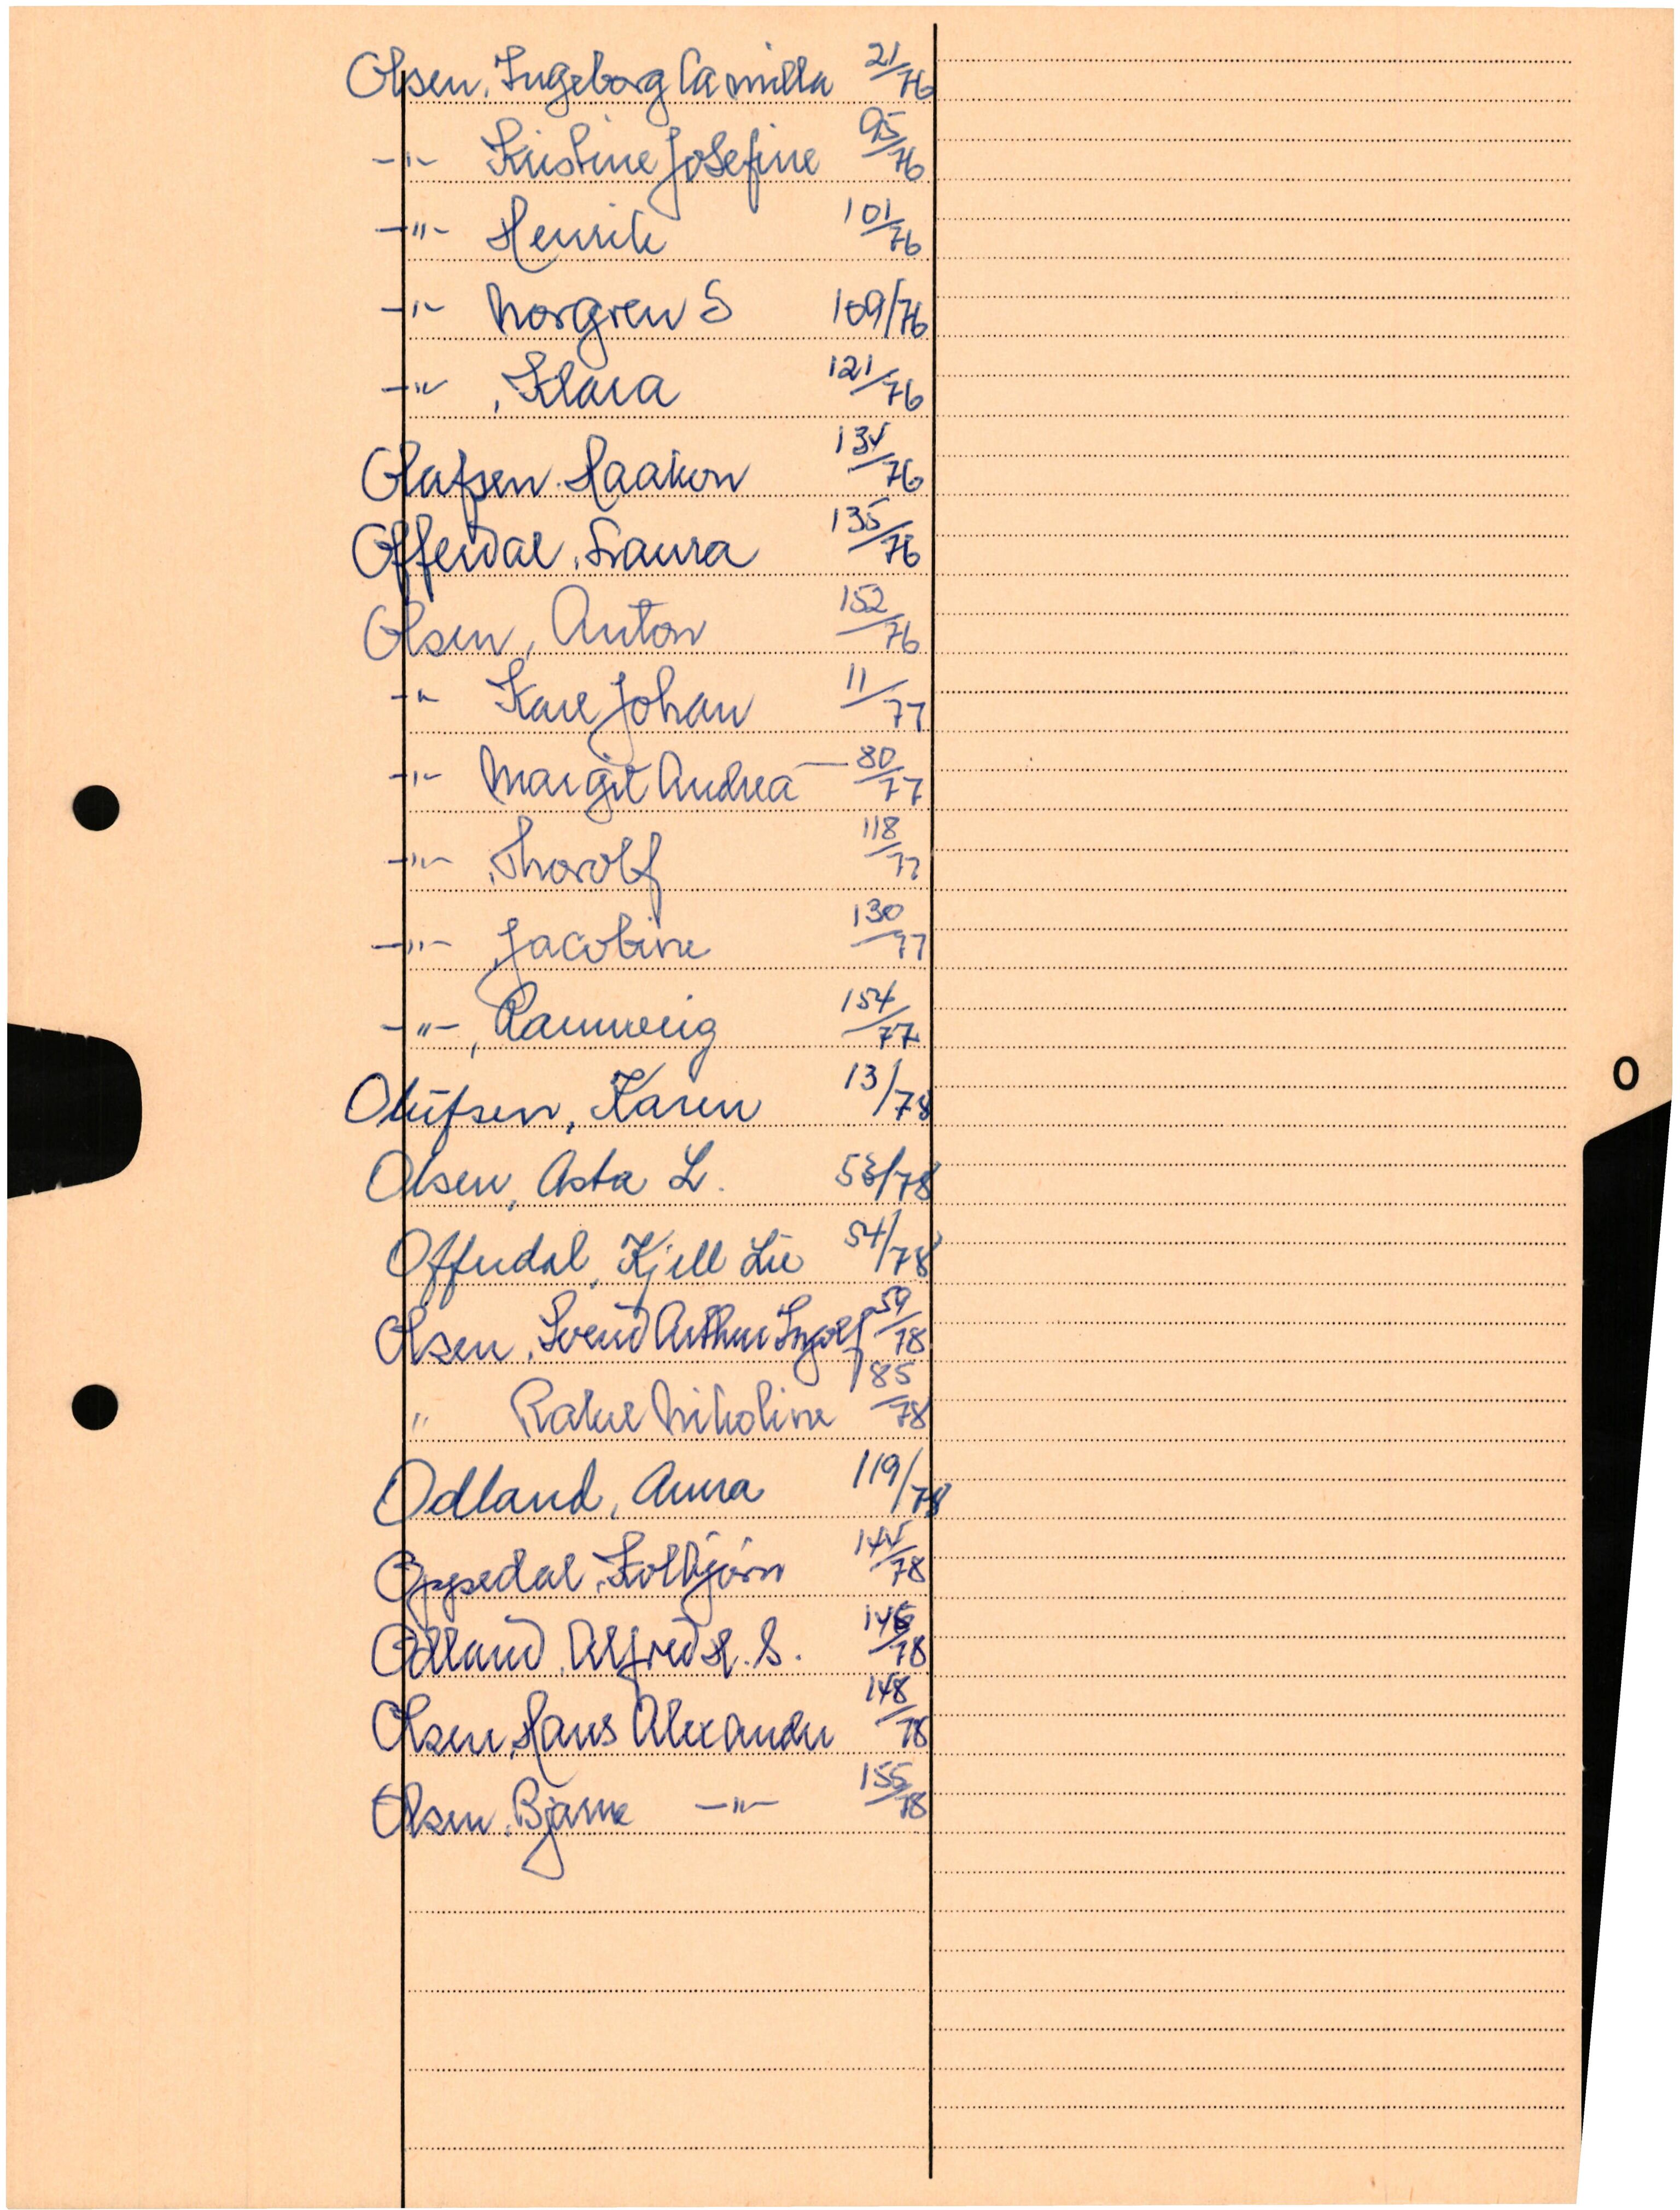 Olsen, Ingeborg Camilla 21/76
-"- Kristine Josefine 95/76
-"- Henrik 101/76
-"- Norgren S 109/76
-"- , Klara 121/76
Olafsen. Haakon 134/76
Offerdal, Laura 135/76
Olsen, Anton 152/76
-"- Karl Johan 11/77
-"- Margit Andrea — 80/77
-"- , Thorolf 118/77
-"- , Jacobine 130/77
-"- , Rannveig 154/77
Olufsen, Karen 13/78
Olsen, Asta L. 53/78
Offerdal, Kjell Lie 54/78
Olsen, Svend Arthur Ingolf 59/78
" Rakel Nikoline 85/78
Odland, Anna 119/78
O
Oppedal, Kolbjørn 144/78
Odland, Alfred H. S. 146/78
Olsen, Hans Alexander 148/78
Olsen, Bjarne -"- 155/78